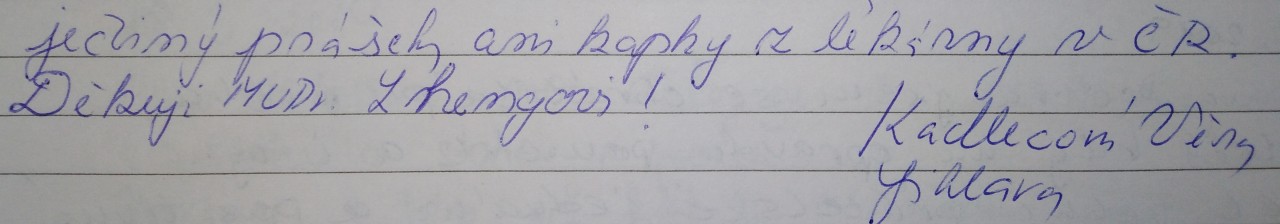 jediný prášek, ani kapky z lékárny v ČR.
Děkuji MUDr. Zhengovi!
Kadlecová Věra
Jihlava